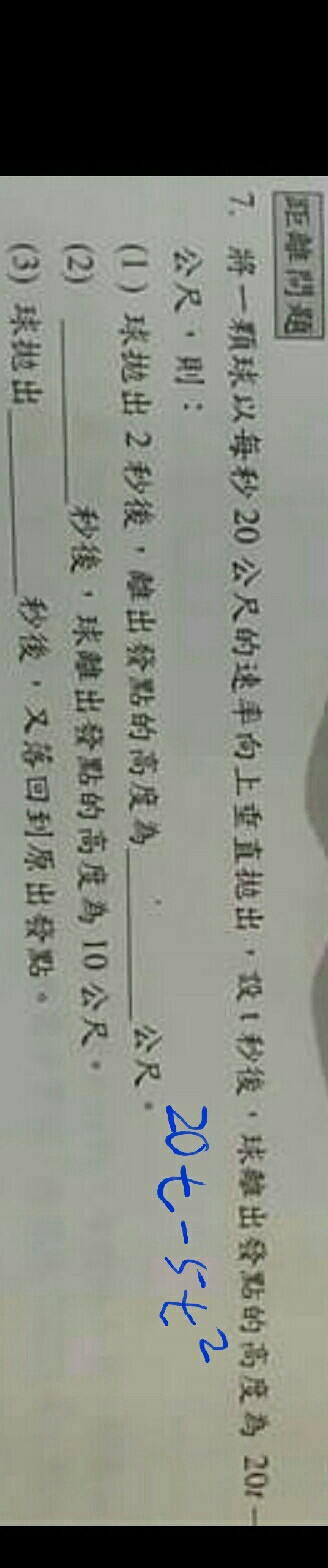 距離問題
7. 將一顆球以每秒 20 公尺的速率向上垂直拋出，設 t 秒後，球離出發點的高度為 20t－
公尺，則：
(1) 球拋出 2 秒後，離出發點的高度為________公尺。
20t-5t²
(2) ________秒後，球離出發點的高度為 10 公尺。
(3) 球拋出________秒後，又落回到原出發點。